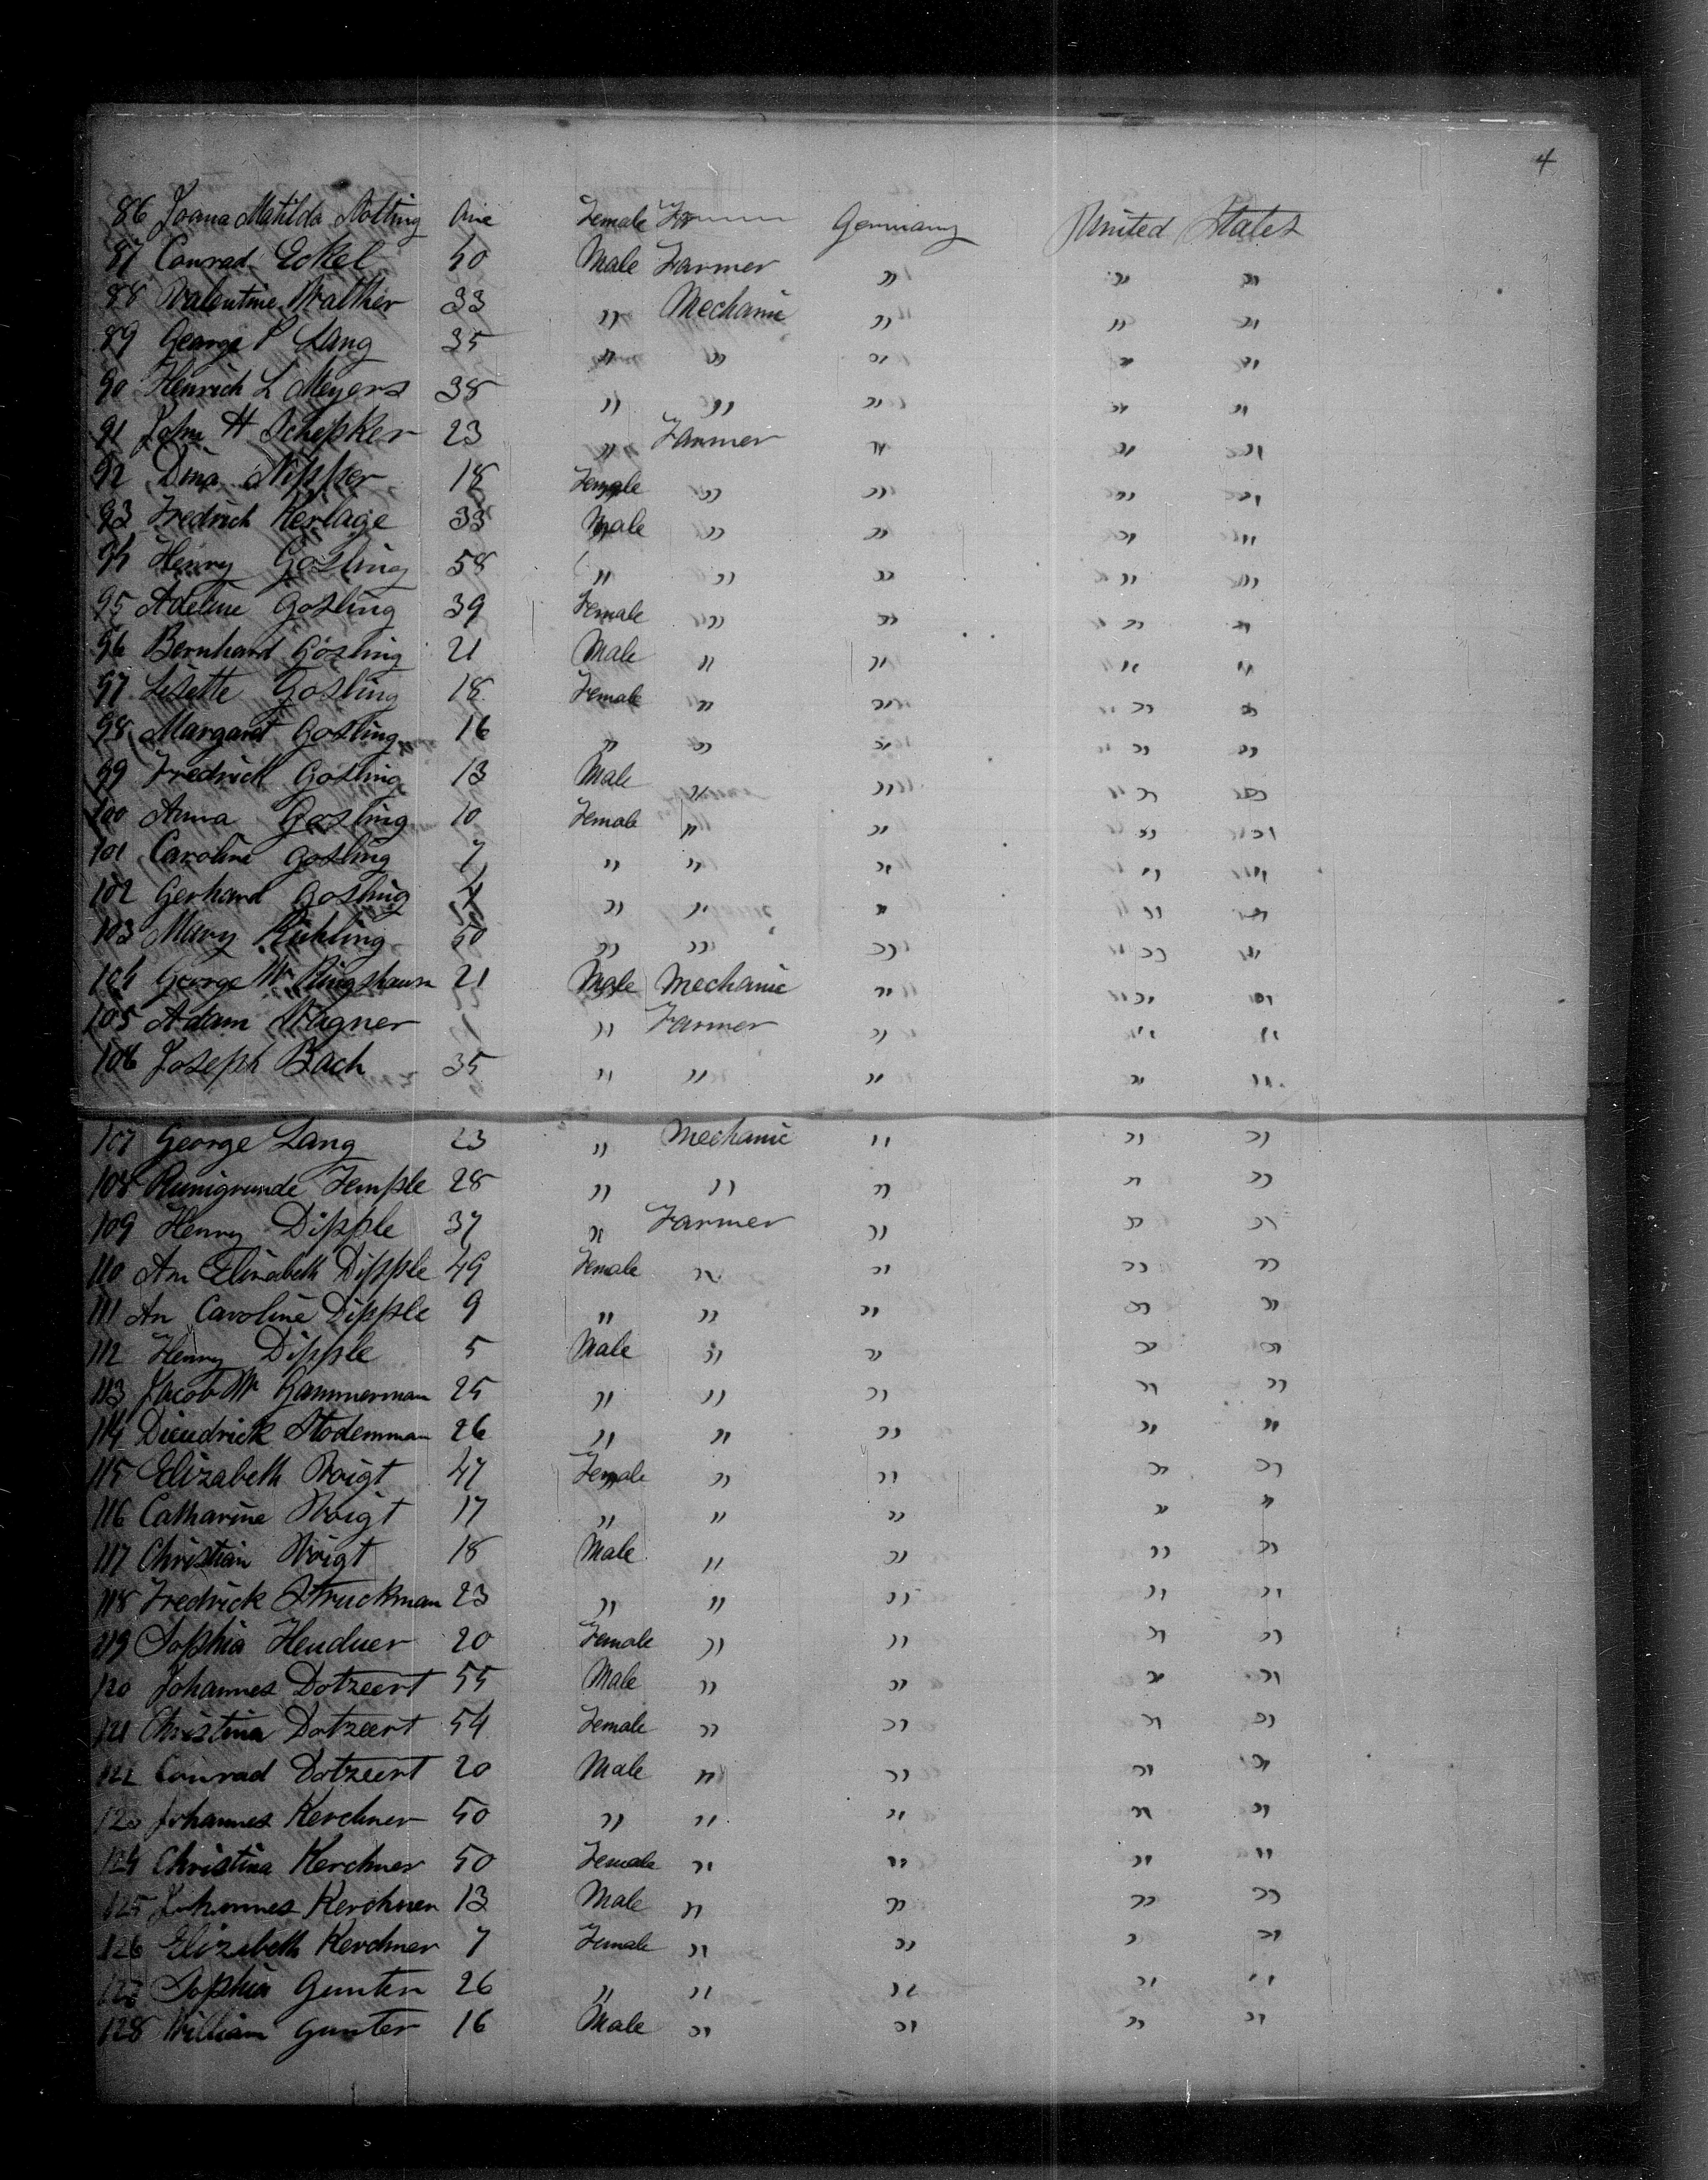 4
86 Joana Matilda Nolting One Female Germany United States
87 Conrad Eckel 40 Male Farmer " " "
88 Valentine Walther 33 " Mechanic " " "
89 George P Lang 35 " " " " "
90 Henrich L Meyers 38 " " " " "
91 John H Schepker 23 " Farmer " " "
92 Dina Nipper 18 Female " " " "
93 Fredrich Kerlage 33 Male " " " "
94 Henry Gosling 58 " " " " "
95 Adeline Gosling 39 Female " " " "
96 Bernhard Gosling 21 Male " " " "
97 Lisette Gosling 18 Female " " " "
98 Margaret Gosling 16 " " " " "
99 Fredrich Gosling 13 Male " " " "
100 Anna Gosling 10 Female " " " "
101 Caroline Gosling 7 " " " " "
102 Gerhard Gosling 4 " " " " "
103 Mary 50 " " " " "
104 George W Ringshausn 21 Male Mechanic " " "
105 Adam Wagner " Farmer " " "
106 Joseph Bach 35 " " " " "
107 George Lang 23 " Mechanic " " "
108 Kunigunde Temple 28 " " " " "
109 Henry Dipple 37 " Farmer " " "
110 An Elizabeth Dipple 49 Female " " " "
111 An Caroline Dipple 9 " " " " "
112 Henry Dipple 5 Male " " " "
113 Jacob W Gammerman 25 " " " " "
114 Diendrick Stodemman 26 " " " " "
115 Elizabeth Voigt 47 Female " " " "
116 Catharine Voigt 17 " " " " "
117 Christian Voigt 18 Male " " " "
118 Fredrick Struckman 23 " " " " "
119 Sophia Henduer 20 Female " " " "
120 Johannes Dotzeert 55 Male " " " "
121 Christina Dotzeert 54 Female " " " "
122 Conrad Dotzeert 20 Male " " " "
123 Johannes Kerchner 50 " " " " "
124 Christina Kerchner 50 Female " " " "
125 Johannes Kerchner 13 Male " " " "
126 Elizabeth Kerchner 7 Female " " " "
127 Sophia Gunter 26 " " " " "
128 William Gunter 16 Male " " " "